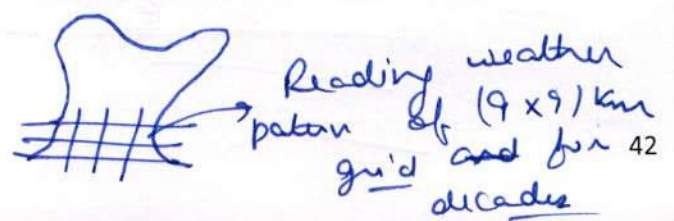 Reading weather
patern of (9 x 9) Km
grid and for 42
decades